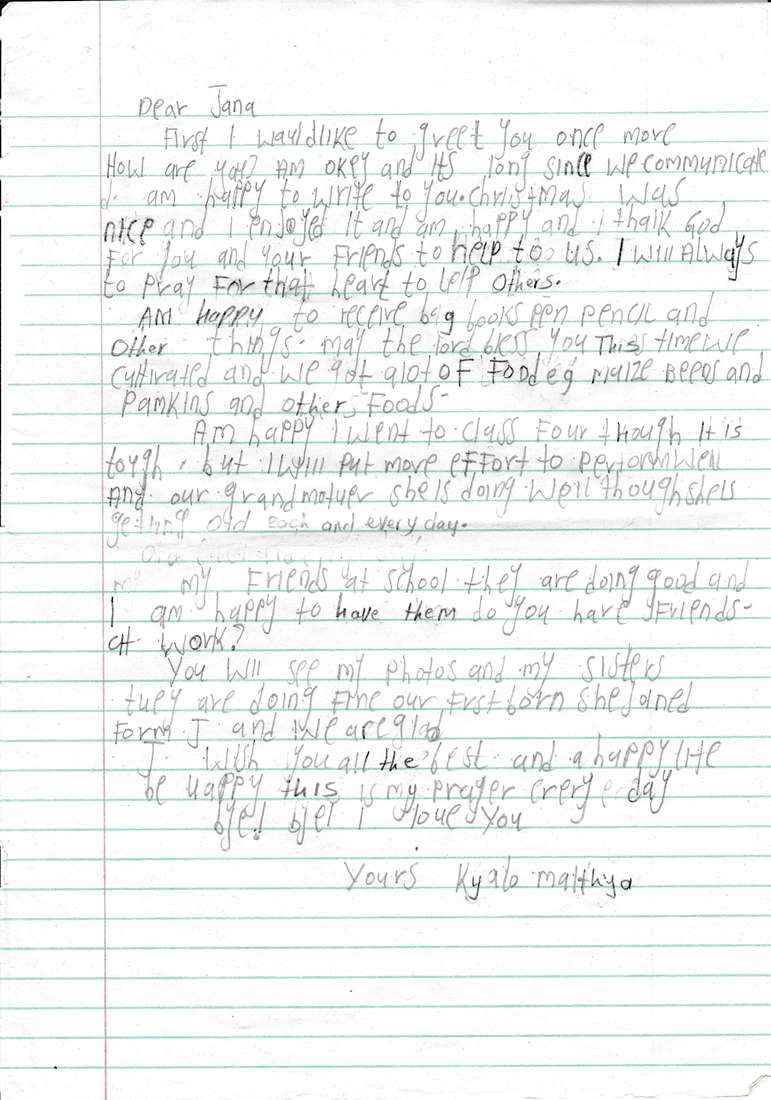 Dear Jana
First I wauldlike to greet you once more
How are yay? Am okey and its long since we communicate
d. am happy to write to you. christmas was
nice and i enjoyed it and am happy and i thaik God
For you and your Friends to help to us. I will Always
to pray For that heart to help others.
AM happy to receive bag books pen pencil and
other things. may the lord bless you This time we
cultivated and we got alot of Food eg maize Beens and
Pamkins and other Foods-
Am happy I went to class Four though it is
tough. but I will put more effort to perform well
And our grandmother she is doing well though she is
getting old each and every day.
my Friends at school they are doing good and
I am happy to have them do you have Friends-
at work?
You will see my photos and my sisters
they are doing Fine our Frst born she Joined
Form I and we are glad
I wish you all the best and a happy life
be happy this is my prayer every day
bye! bye! I love you
Yours Kyalo